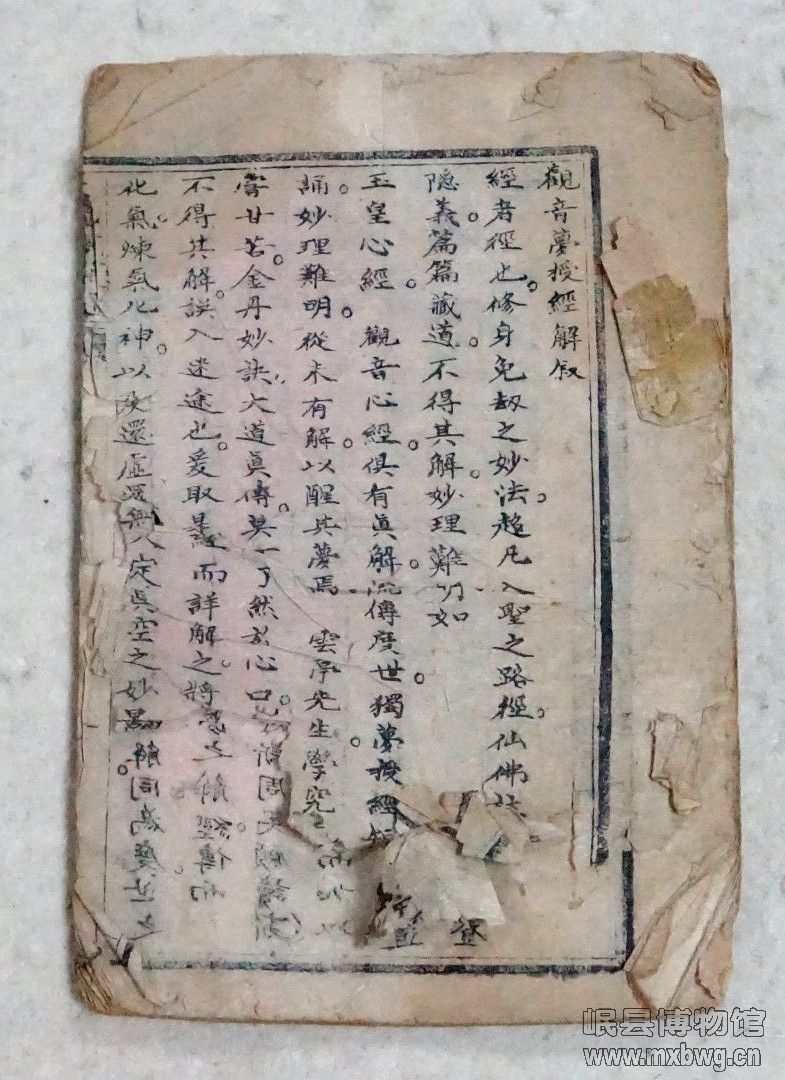 觀音夢授經解叙
經者徑也修身免劫之妙法。超凡入聖之路徑。仙佛
隐義。篇篇藏道。不得其解。妙理難明如
玉皇心經。觀音心經。俱有眞解。流傳度世。獨夢授經
誦。妙理難明。從未有解。以醒其夢焉 雲亭先生學究
嘗甘苦。金丹妙訣。大道眞傳。莫一了然於心口。
不得其解。誤入迷途也。爰取是經而詳解之。將 之解經傳而
化氣。煉氣化神。以 還虛 入定眞空之妙 解同爲度世之
岷县博物馆
www.mxbwg.cn